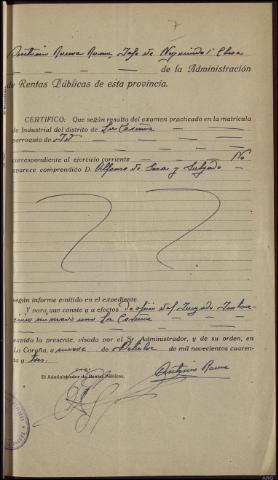 7
Antonio Rueva Rueva, Jefe de Negociado 1ª Clase
de la Administración
de Rentas Públicas de esta provincia.
CERTIFICO: Que según resulta del examen practicado en la matrícula
de Industrial del distrito de La Coruña
parroquia de Id
correspondiente al ejercicio corriente No
aparece comprendido D. Alfonso de Lara y Salgado
según informe emitido en el expediente.
Y para que conste y a efectos de oficio del Juzgado
numero uno La Coruña
expido la presente, visada por el Sr. Administrador, y de su orden, en
La Coruña, a nueve de Octubre de mil novecientos cuaren-
ta y tres.
El Administrador de Rentas Públicas,
Antonio Rueva